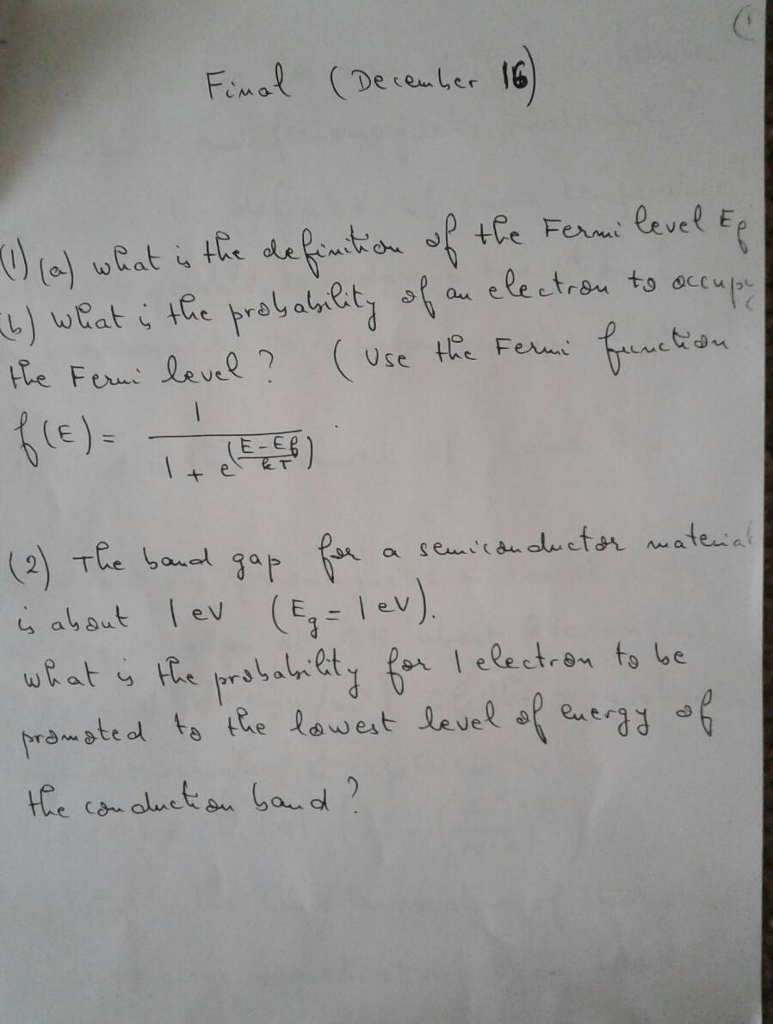 (1
Final (December 16)
(1) (a) what is the definition of the Fermi level Ef
(b) what is the probability of an electron to occupy
the Fermi level? (Use the Fermi function
f(E) = 1 / (1 + e^((E-Ef)/kT))
(2) The band gap for a semiconductor material
is about 1 eV (Eg = 1 eV).
what is the probability for 1 electron to be
promoted to the lowest level of energy of
the conduction band?